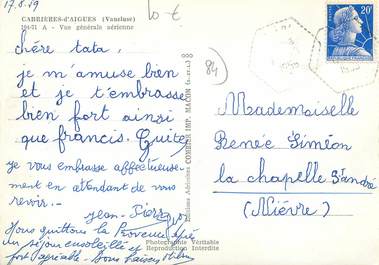 17.8.59
CABRIÈRES-d'AIGUES (Vaucluse)
194-71 A - Vue générale aérienne
10 €
84
20F
chère tata,
je m'amuse bien
et je t'embrasse
bien fort ainsi
que francis. Guite
je vous embrasse affectueuse-
ment en attendant de vous
revoir. -
jean-Pierre
Nous quittons la Provence après
un séjour ensoleillé et
fort agréable - Bons baisers
Éditions Aériennes COMBIER IMP. MACON
Photographie Véritable
Reproduction Interdite
Mademoiselle
Renée Siméon
la chapelle St André
(Nièvre)